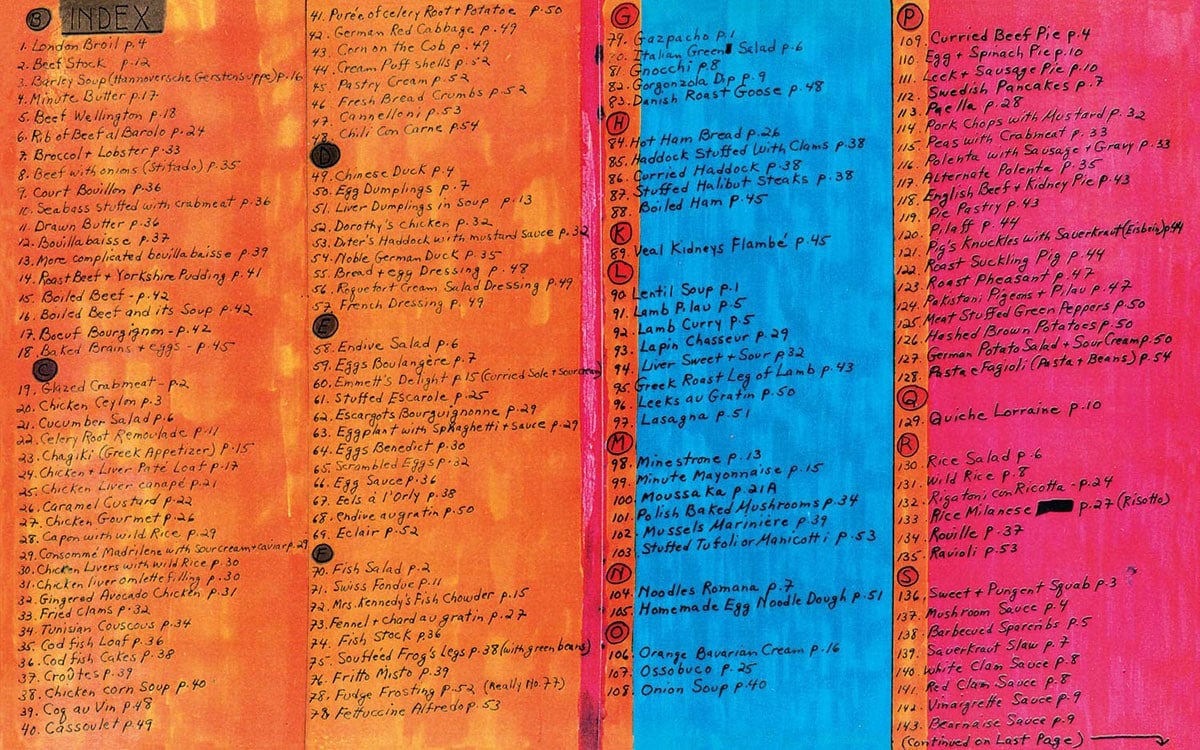 B INDEX
1. London Broil p.4
2. Beef Stock p.12
3. Barley Soup (Hannoversche Gerstensuppe) p.16
4. Minute Butter p.17
5. Beef Wellington p.18
6. Rib of Beef al Barolo p.24
7. Broccol + Lobster p.33
8. Beef with onions (Stifado) p.35
9. Court Bouillon p.36
10. Seabass stuffed with crabmeat p.36
11. Drawn Butter p.36
12. Bouillabaisse p.37
13. More complicated bouillabaisse p.39
14. Roast Beef + Yorkshire Pudding p.41
15. Boiled Beef - p.42
16. Boiled Beef and its Soup p.42
17. Boeuf Bourgignon - p.42
18. Baked Brains + eggs - p.45
C
19. Glazed Crabmeat - p.2
20. Chicken Ceylon p.3
21. Cucumber Salad p.6
22. Celery Root Remoulade p.11
23. Chagiki (Greek Appetizer) p.15
24. Chicken + Liver Paté Loaf p.17
25. Chicken Liver canapé p.21
26. Caramel Custard p.22
27. Chicken Gourmet p.26
28. Capon with wild Rice p.29
29. Consommé Madrilene with sour cream + caviar p.29
30. Chicken Livers with wild Rice p.30
31. Chicken liver omlette filling p.30
32. Gingered Avocado Chicken p.31
33. Fried Clams p.32
34. Tunisian Couscous p.34
35. Cod fish Loaf p.36
36. Cod fish Cakes p.38
37. Croûtes p.39
38. Chicken corn Soup p.40
39. Coq au Vin p.48
40. Cassoulet p.49
41. Purée of celery Root + Potatoe p.50
42. German Red Cabbage p.49
43. Corn on the Cob p.49
44. Cream Puff shells p.52
45. Pastry Cream p.52
46 Fresh Bread Crumbs p.52
47. Cannelloni p.53
48. Chili Con Carne p.54
D
49. Chinese Duck p.4
50. Egg Dumplings p.7
51. Liver Dumplings in Soup p.13
52. Dorothy's chicken p.32
53. Diter's Haddock with mustard sauce p.32
54. Noble German Duck p.35
55. Bread + egg Dressing p.48
56. Roquefort Cream Salad Dressing p.49
57. French Dressing p.49
E
58. Endive Salad p.6
59. Eggs Boulangère p.7
60. Emmett's Delight p.15 (Curried Sole + Sour cream)
61. Stuffed Escarole p.25
62. Escargots Bourguignonne p.29
63. Eggplant with Sphaghetti + Sauce p.29
64. Eggs Benedict p.30
65. Scrambled Eggs p.32
66. Egg Sauce p.36
67. Eels à l'Orly p.38
68. endive au gratin p.50
69. Eclair p.52
F
70. Fish Salad p.2
71. Swiss Fondue p.11
72. Mrs. Kennedy's Fish Chowder p.15
73. Fennel + chard au gratin p.27
74. Fish Stock p36
75. Souffléed Frog's Legs p.38 (with green beans)
76. Fritto Misto p.39
78. Fudge Frosting p.52 (Really No. 77)
78. Fettuccine Alfredo p.53
G
79. Gazpacho p.1
Italian Green Salad p.6
81. Gnocchi p.8
82. Gorgonzola Dip p.9
83. Danish Roast Goose p.48
H
84. Hot Ham Bread p.26
85. Haddock Stuffed With Clams p.38
86. Curried Haddock p.38
87. Stuffed Halibut Steaks p.38
88. Boiled Ham p.45
K
89. Veal Kidneys Flambé p.45
L
90. Lentil Soup p.1
91. Lamb Pilau p.5
92. Lamb Curry p.5
93. Lapin Chasseur p.29
94. Liver Sweet + Sour p.32
95. Greek Roast Leg of Lamb p.43
96. Leeks au Gratin p.50
97. Lasagna p.51
M
98. Minestrone p.13
99. Minute Mayonnaise p.15
100. Moussaka p.21A
101. Polish Baked Mushrooms p.34
102. Mussels Marinière p.39
103. Stuffed Tufoli or Manicotti p.53
N
104. Noodles Romana p.7
105. Homemade Egg Noodle Dough p.51
O
106. Orange Bavarian Cream p.16
107. Ossobuco p.25
108. Onion Soup p.40
P
109. Curried Beef Pie p.4
110. Egg + Spinach Pie p.10
111. Leek + Sausage Pie p.10
112. Swedish Pancakes p.7
113. Paella p.28
114. Pork Chops with Mustard p.32
115. Peas with Crabmeat p.33
116. Polenta with Sausage + Gravy p.33
117. Alternate Polenta p.35
118. English Beef + Kidney Pie p.43
119. Pie Pastry p.43
120. Pilaff p.44
121. Pig's Knuckles with Sauerkraut (Eisbein) p44
122. Roast Suckling Pig p.44
123. Roast Pheasant p.47
124. Pakistani Pigeons + Pilau p.47
125. Meat Stuffed Green Peppers p.50
126. Hashed Brown Potatoes p.50
127. German Potato Salad + Sour Cream p.50
128. Pasta e Fagioli (Pasta + Beans) p.54
Q
129. Quiche Lorraine p.10
R
130. Rice Salad p.6
131. Wild Rice p.8
132. Rigatoni con Ricotta - p.24
133. Rice Milanese p.27 (Risotto)
134. Rouille p.37
135. Ravioli p.53
S
136. Sweet + Pungent Squab p.3
137. Mushroom Sauce p.4
138. Barbecued Spareribs p.5
139. Sauerkraut Slaw p.7
140. White Clam Sauce p.8
141. Red Clam Sauce p.8
142. Vinaigrette Sauce p.9
143. Bearnaise Sauce p.9
(Continued on Last Page)